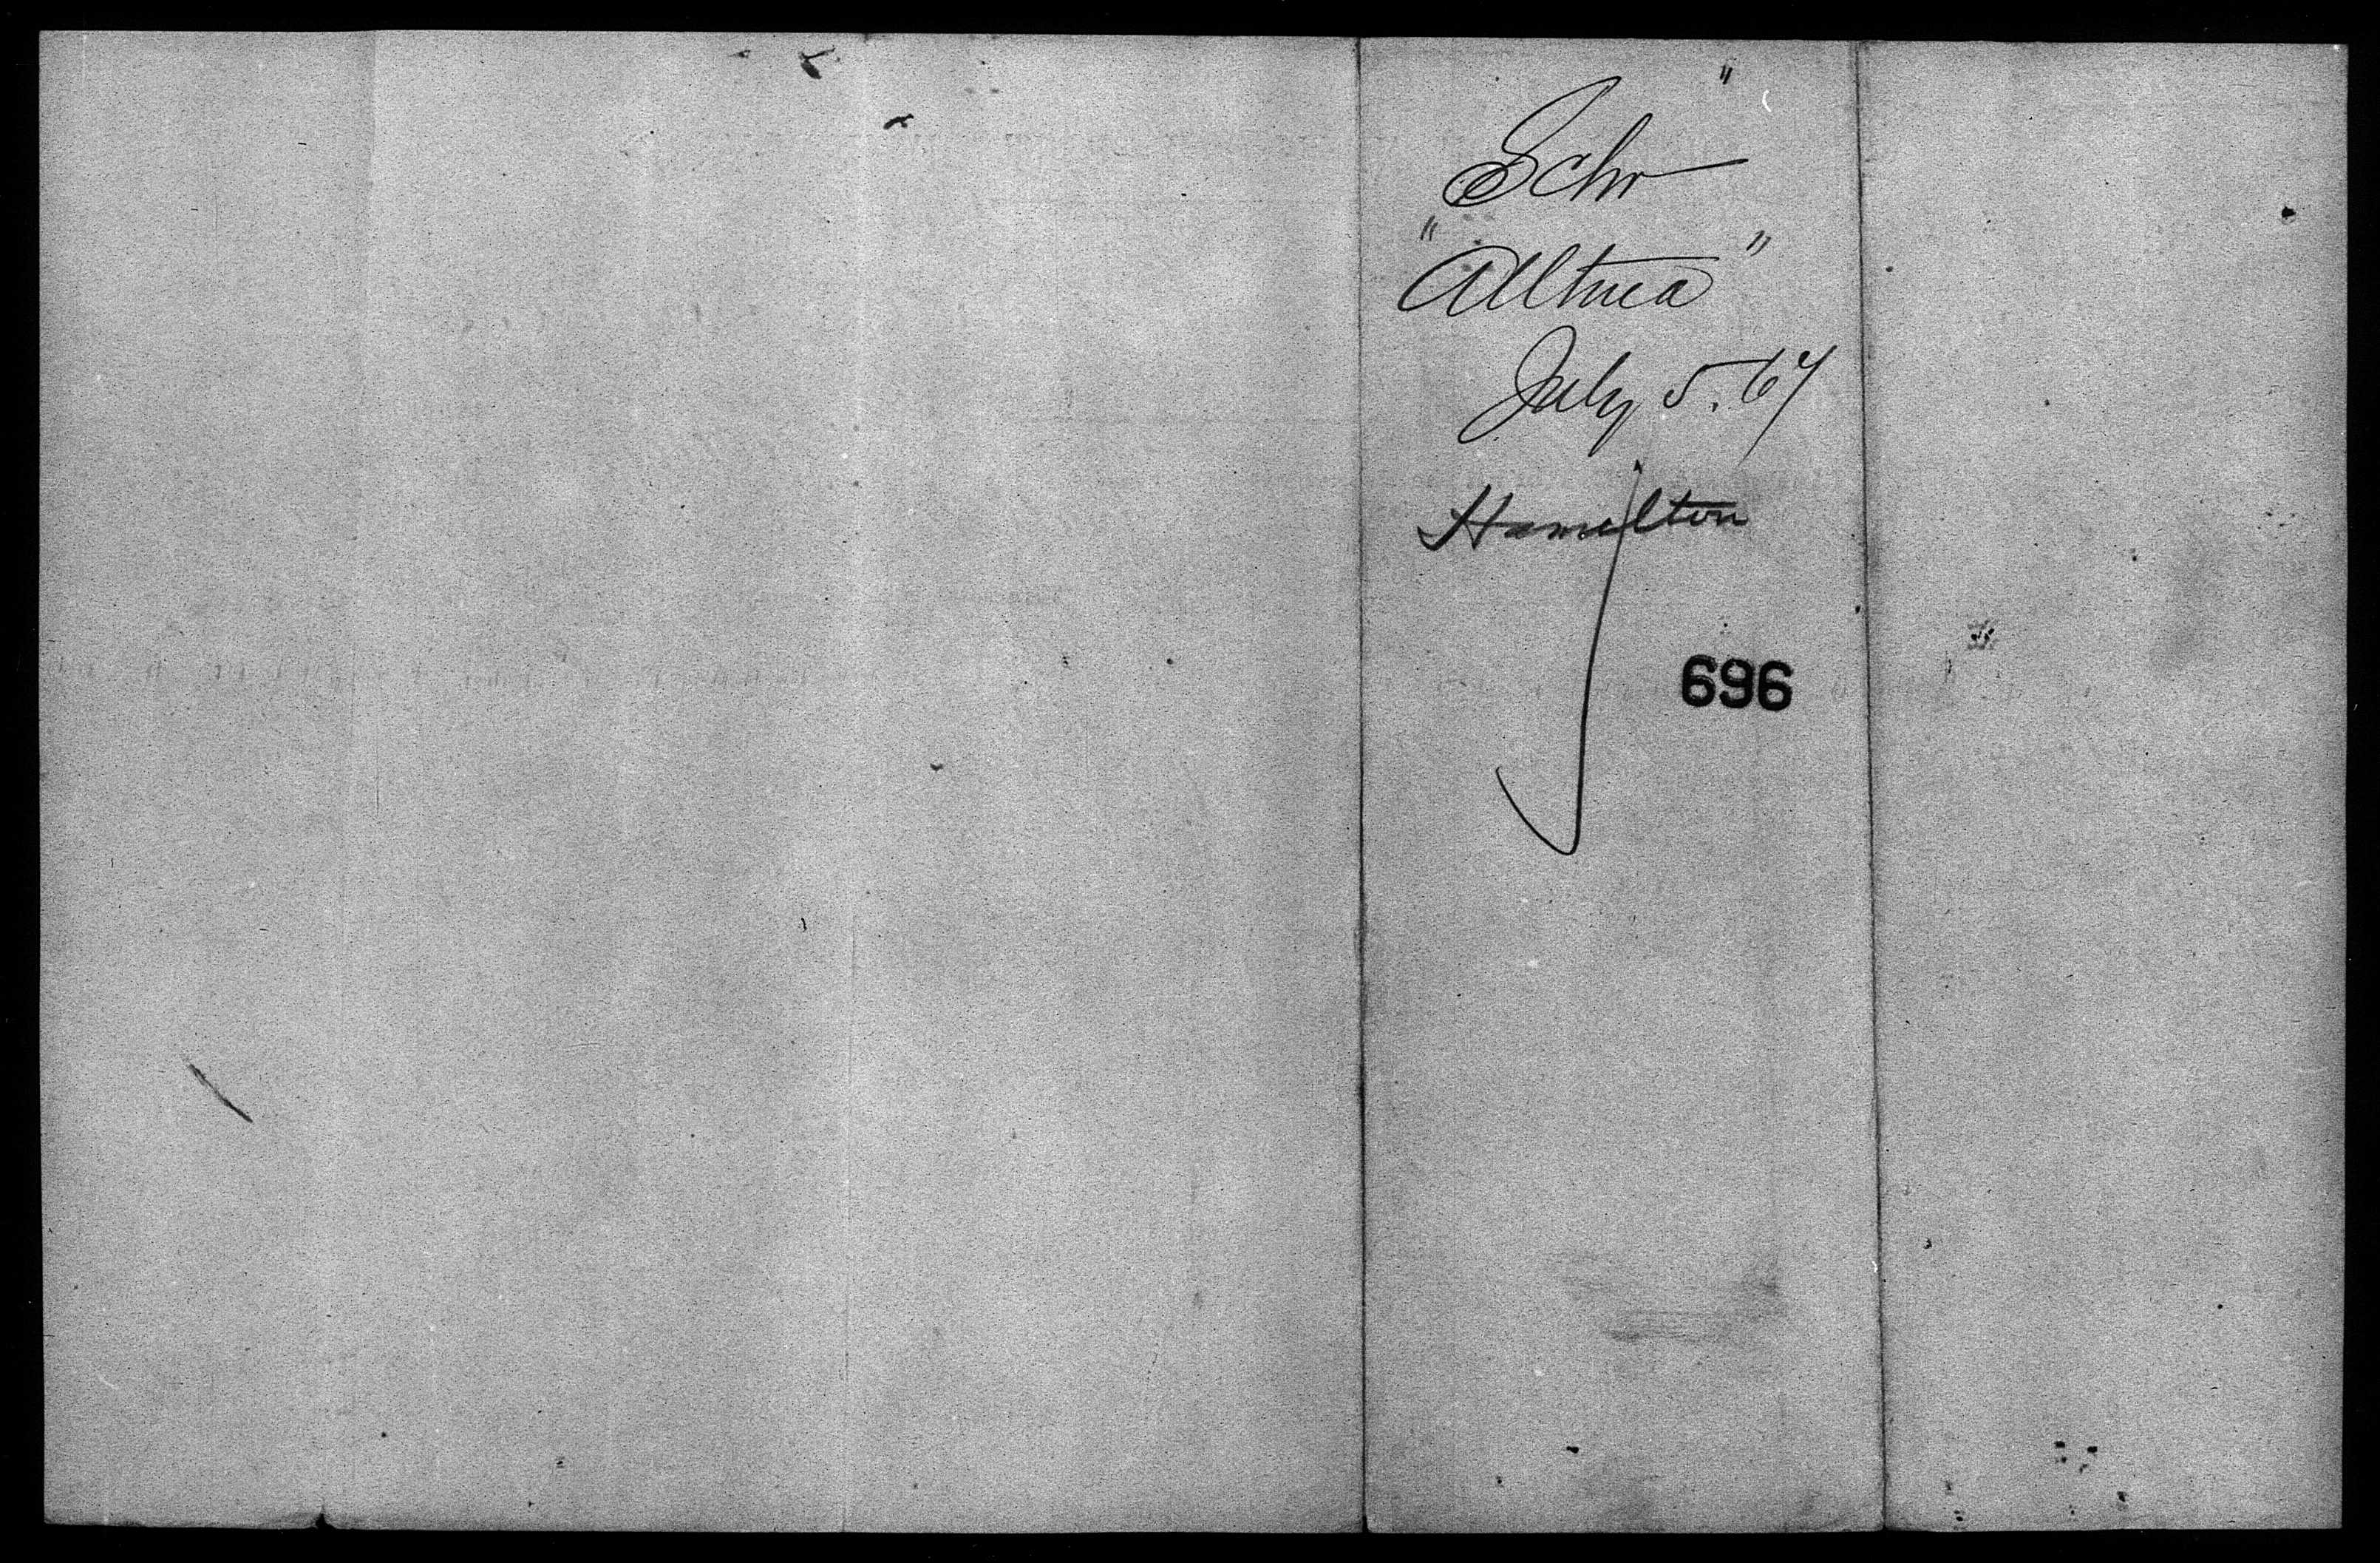 Schr
"Alltnea"
July 5. 67
Hamilton
696